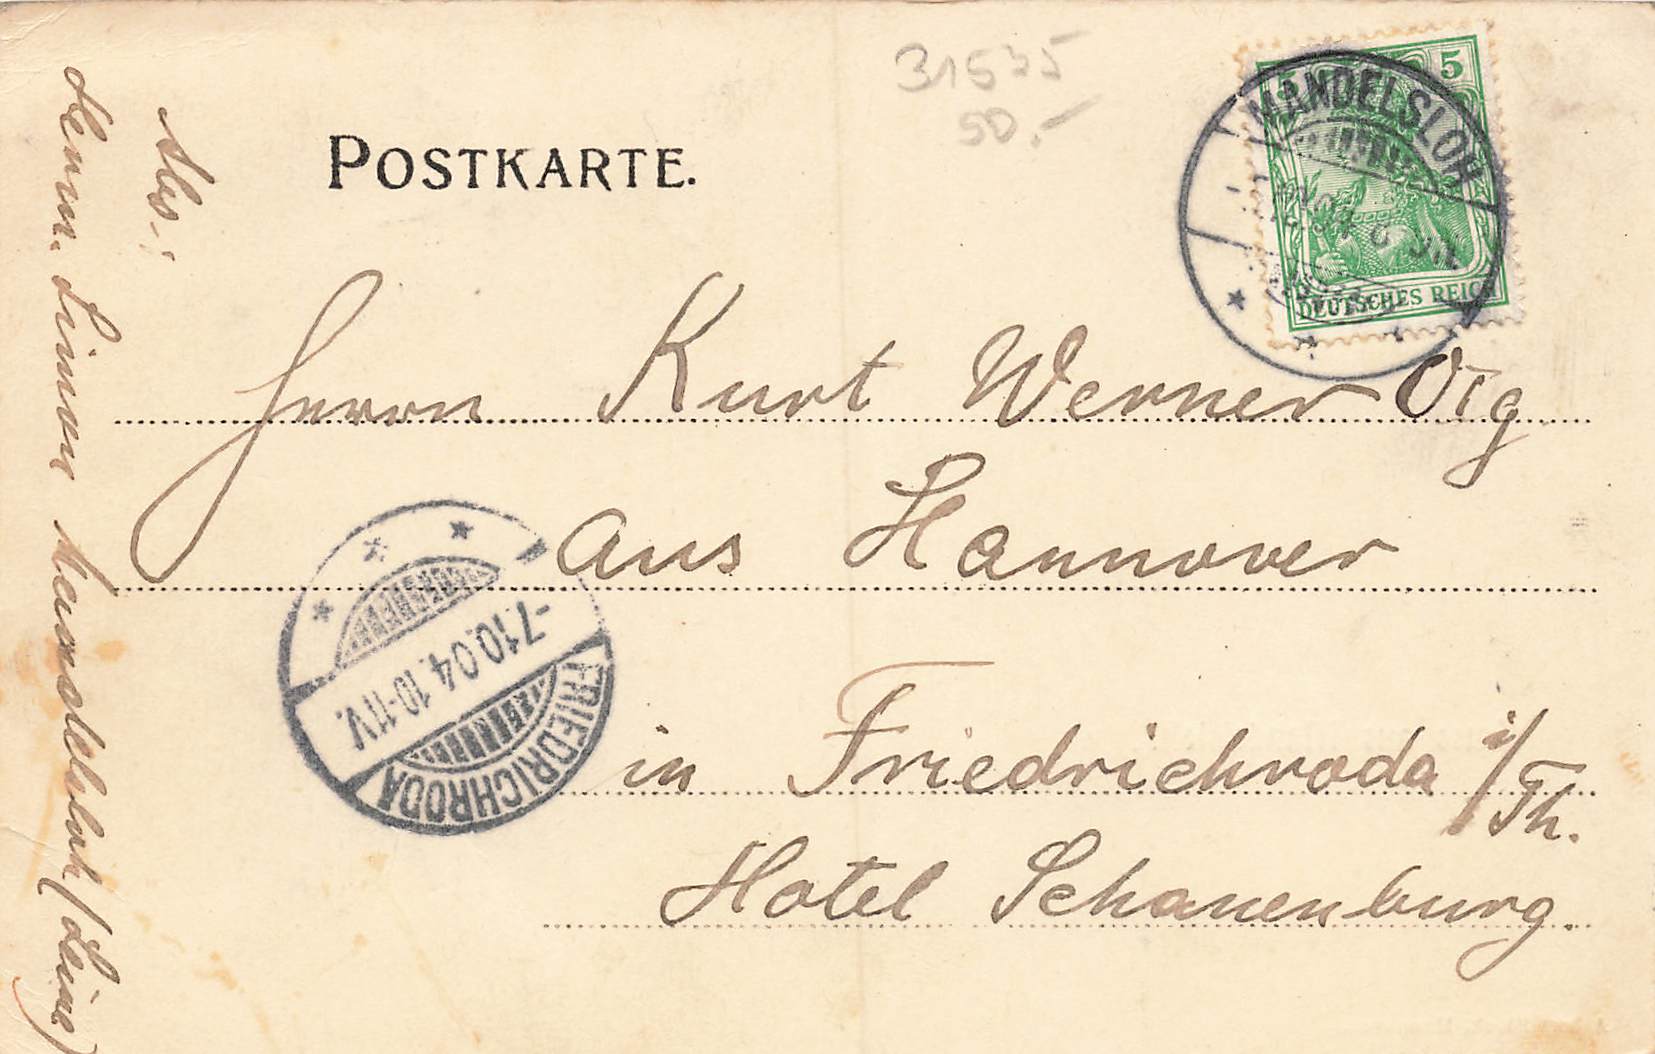 31535
50.-
POSTKARTE.
5
MANDELSLOH
DEUTSCHES REICH
Herrn Kurt Werner Otg
aus Hannover
in Friedrichroda i/Th.
Hotel Schauenburg.
-7.10.04. 10-11V.
FRIEDRICHRODA
Abs:
Mandelsloh (Leine)